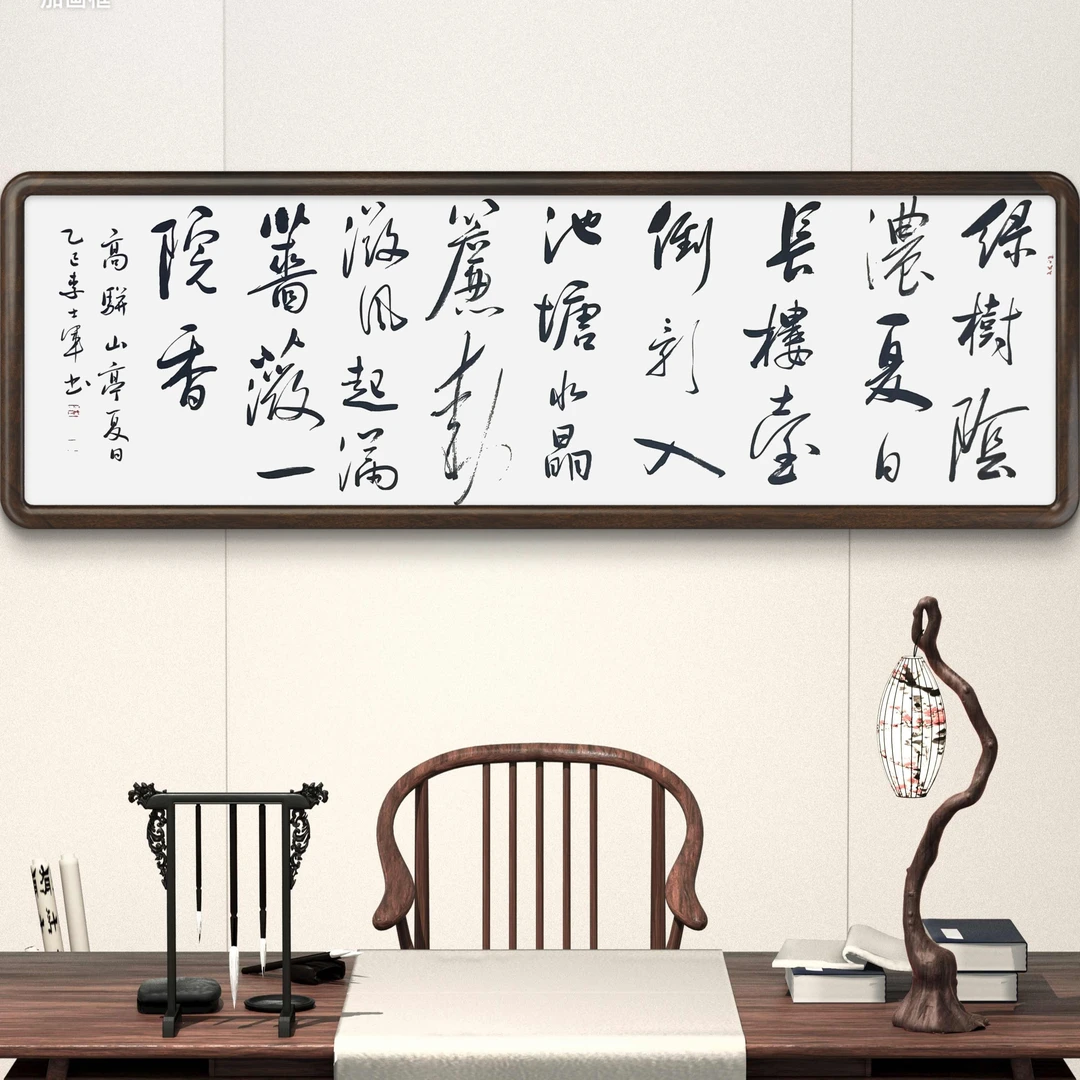 加画框
綠樹陰
濃夏日
長樓臺
倒影入
池塘水晶
簾動
微風起滿
薔薇一
院香
高駢山亭夏日
乙巳李士軍书